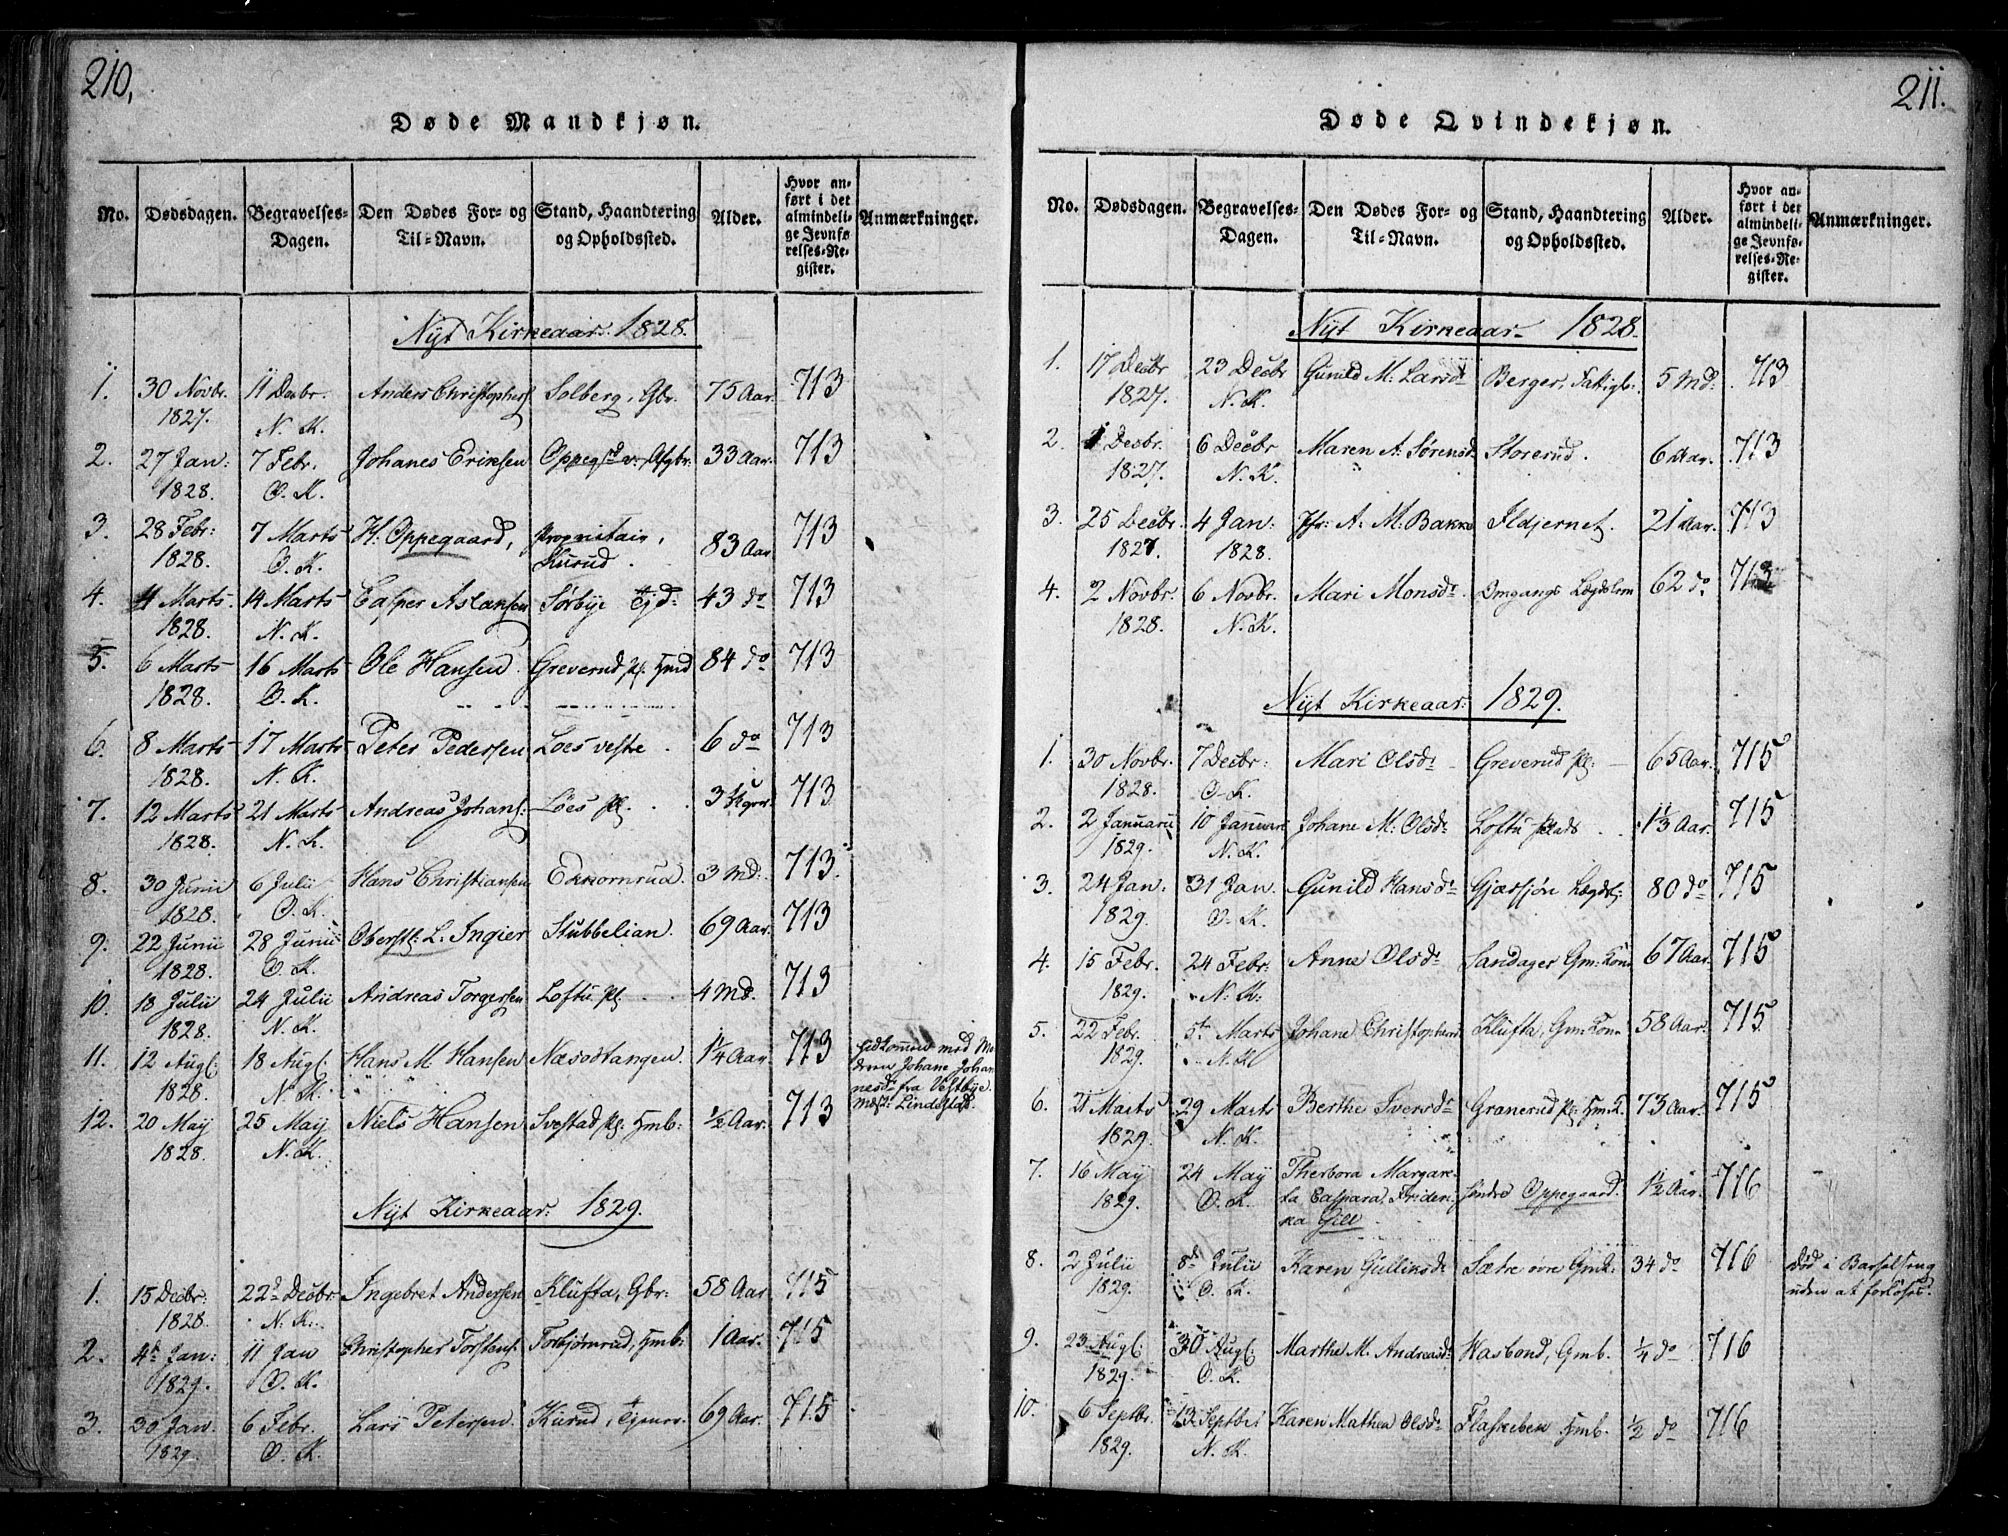 210.
Døde Mandkjøn.
No. Dødsdagen. Begravelses-Dagen. Den Dødes For- og Til-Navn. Stand, Haandtering og Opholdssted. Alder. Hvor anført i det almindelige Jevnførelses-Register. Anmærkninger.
Nyt Kirkeaar. 1828.
1. 30 Novbr. 11 Decbr. Anders Christophers Solberg, Gbr. 75 Aar. 713
1827. N. K.
2. 27 Jan: 7 Febr. Johanes Eriksen Oppegrd v. Afgbr. 33 Aar. 713
1828. O. K.
3. 28 Febr: 7 Marts H. Oppegaard, Proprietair, 83 Aar 713
1828. O. K. Kurud.
4. 4 Marts 14 Marts Casper Aslansen Sørbye Ejd: 43 do 713
1828. N. K.
5. 6 Marts 16 Marts Ole Hansen Greverud, Pl. Hmd 84 do 713
1828. O. K.
6. 8 Marts 17 Marts Peter Pedersen Loes vestre 6 do 713
1828. N. K.
7. 12 Marts 21 Marts Andreas Johans: Löes Pl. 3 713
1828. N. K.
8. 30 Junii 6 Julii Hans Christiansen Ekkornrud. 3 Md: 713.
1828. O. K.
9. 22 Junii 28 Junii Oberstl: L. Ingier Stubbelian. 69 Aar. 713
1828. O. K.
10. 18 Julii 24 Julii Andreas Torgersen Loftu Pl. 4 Md. 713
1828. N. K.
11. 12 Augl: 18 Augl: Hans M. Hansen Næsodtangen. 1¼ Aar. 713 hidkommen med Mo
1828. N. K. dren Johane Johan
nesdr fra Vestbye.
12. 20 May 25 May Niels Hansen Svestad Pl. Hmb: ½ Aar. 713 Lindest
1828. N. K.
Nyt Kirkeaar: 1829.
1. 15 Decbr: 22d Decbr Ingebret Andersen Klufta, Gbr: 58 Aar. 715
1828. N. K.
2. 4d Jan: 11 Jan Christopher Torstens: Torbjørnrud, Hmb: 1 Aar. 715
1829. O. K.
3. 30 Jan 6 Febr. Lars Petersen. Kurud, 69 Aar. 715
1829. O. K.
211.
Døde Qvindekjøn.
No. Dødsdagen. Begravelses-Dagen. Den Dødes For- og Til-Navn. Stand, Haandtering og Opholdssted. Alder. Hvor anført i det almindelige Jevnførelses-Register. Anmærkninger.
Nyt Kirkeaar 1828.
1. 17 Decbr 23 Decbr Gunild M. Larsdr Berger, Fattigl: 5 Md: 713
1827. N. K.
2. 1 Decbr. 6 Decbr Maren A. Sørensd. Storerud. 6 Aar. 713
1827. N. K.
3. 25 Decbr. 4 Jan: Jfr: A. M. Bakke Ildjernet. 21 Aar. 713
1827. 1828.
4. 2 Novbr. 6 Novbr. Mari Monsdr. Omgangs Lægdslem 62 do 713
1828. N. K.
Nyt Kirkeaar: 1829.
1. 30 Novbr. 7 Decbr: Mari Olsdr Greverud Pl: 65 Aar. 715
1828. O. K.
2. 2 Januarii 10 Januari Johane M. Olsdr Loftu Plads 1⅓ Aar. 715
1829. N. K.
3. 24 Jan. 31 Jan. Gunild Hansdr Gjærsjøn Lægdsl: 80 do 715
1829. O. K.
4. 15 Febr. 24 Febr: Anne Olsdr Sandager Gm: Kone 67 Aar. 715
1829. N. K.
5. 22 Febr. 5te Marts Johane Christophersd Klufta, Gm: Kone 58 Aar. 715
1829. N. K.
6. 21 Marts 29 Marts Berthe Iversdr Granerud Pl: Hm: K. 73 Aar. 715
1829. N. K.
7. 16 May 24 May Therbora Margare
1829. O. K. ta Caspara Frideri søndre Oppegaard. 1½ Aar. 716
ka Gill
8. 2 Julii 8d Julii Karen Gulliksdr Sætre øvre Gmk. 34 do 716 Død i Barselseng
1829. O. K. uden at forløses.
9. 23 Augl: 30 Augl: Marthe M. Andreasdr Hasbond, Gmb. ¼ do 716
1829. O. K.
10. 6 Septbr. 13 Septber Karen Mathea Olsdr Flaskebek Hmb. ½ do 716
1829. N. K.